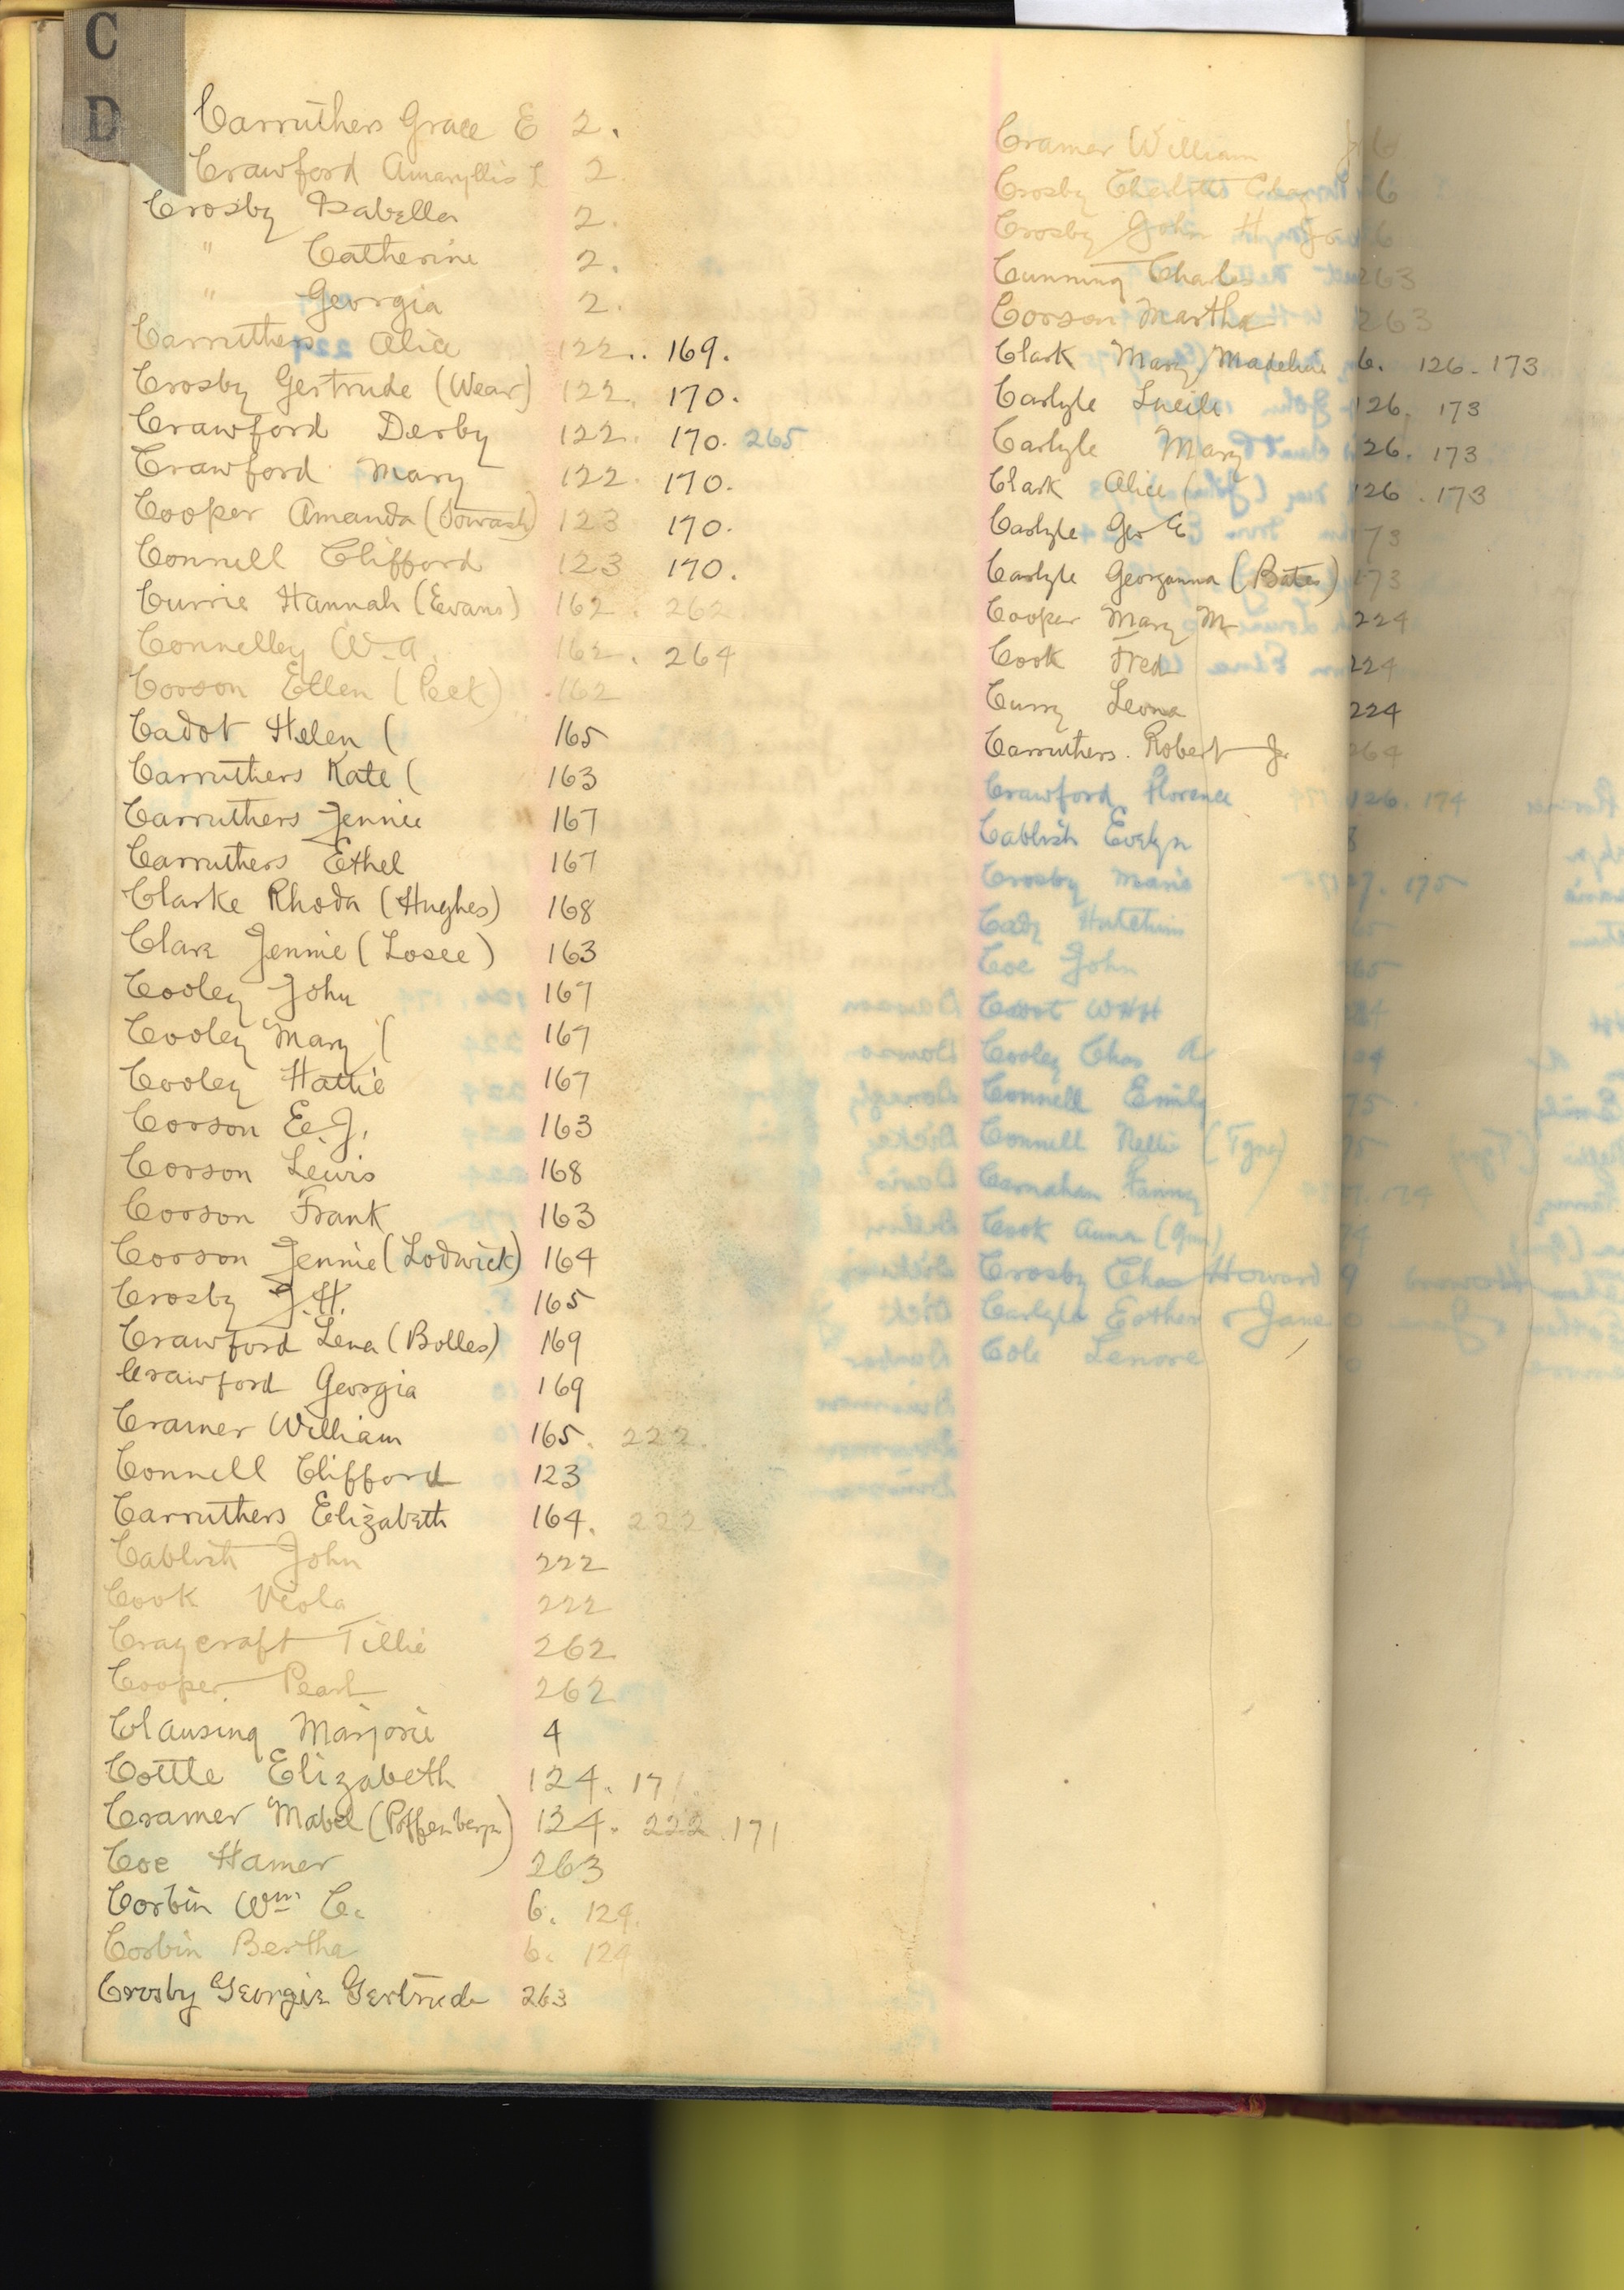 C
D
Carruthers Grace E 2.
Crawford Amaryllis L 2.
Crosby Isabella 2.
" Catherine 2.
" Georgia 2.
Carruthers Alice 122.. 169.
Crosby Gertrude (Wear) 122. 170.
Crawford Derby 122. 170. 265
Crawford Mary 122. 170.
Cooper Amanda (Sowash) 123 170.
Connell Clifford 123 170.
Currie Hannah (Evans) 162. 262.
Connelley W.A. 162. 264
Corson Ellen (Peek) 162
Cadot Helen ( 165
Carruthers Kate ( 163
Carruthers Jennie 167
Carruthers Ethel 167
Clarke Rhoda (Hughes) 168
Clark Jennie (Losee) 163
Cooley John 167
Cooley Mary ( 167
Cooley Hattie 167
Corson E.J. 163
Corson Lewis 168
Corson Frank 163
Corson Jennie (Lodwick) 164
Crosby J.H. 165
Crawford Lena (Bolles) 169
Crawford Georgia 169
Cramer William 165. 222.
Connell Clifford 123
Carruthers Elizabeth 164. 222
Cablish John 222
Cook Viola 222
Craycraft Tillie 262
Cooper Pearl 262
Clausing Marjorie 4
Cottle Elizabeth 124. 171.
Cramer Mabel 124. 222. 171
Coe Hamer 263
Corbin Wm C. 6. 124.
Corbin Bertha 6. 124
Crosby Georgia Gertrude 263
Cramer William Jr 6
Crosby Charlotte 6
Crosby John H 6
Cunning Charles 263
Corson Martha 263
Clark Mary Madeline 6. 126. 173
Carlyle Lucile 126. 173
Carlyle Mary 126. 173
Clark Alice ( 126. 173
Carlyle Geo E 173
Carlyle Georganna (Bates) 173
Cooper Mary M 224
Cook Fred 224
Curry Leona 224
Carruthers. Robert Jr. 264
Crawford Florence 126. 174
Cablish Evelyn 8
Crosby Marie 175
Cady Hutchins
Coe John
Cadot WHH
Cooley Chas A
Connell Emily 75
Connell Nellie (Tyne) 75
Carnahan Fanny 174
Cook Anna
Crosby Chas Howard 9
Carlyle Esther & Jane
Cole Lenore